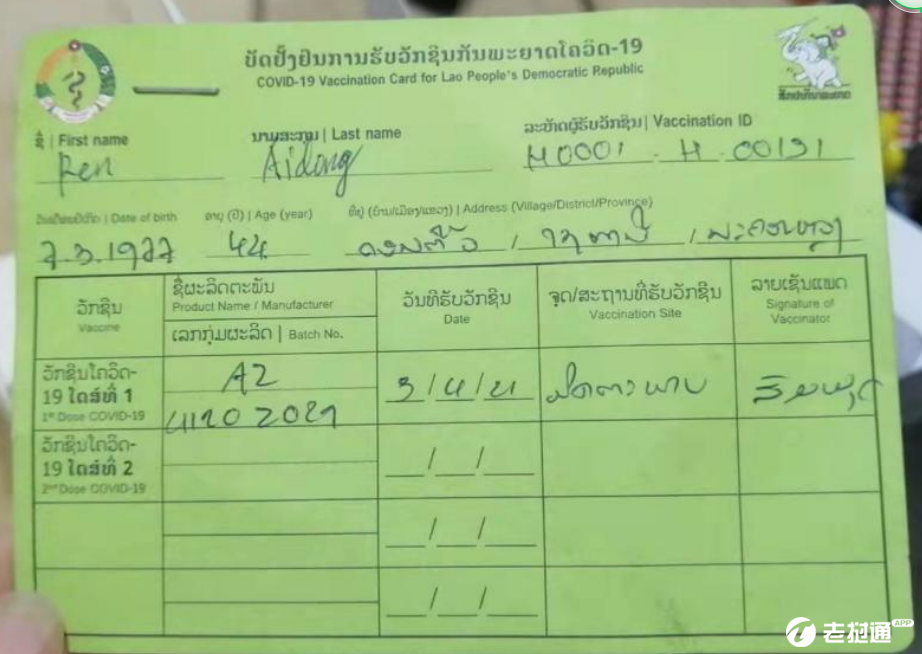 ບັດຢັ້ງຢືນການຮັບວັກຊິນກັນພະຍາດໂຄວິດ-19
COVID-19 Vaccination Card for Lao People's Democratic Republic
ຊື່ | First name ນາມສະກຸນ | Last name ລະຫັດຜູ້ຮັບວັກຊິນ | Vaccination ID
Ren Aidong H0001 - H - 00191
ວັນເດືອນປີເກີດ | Date of birth ອາຍຸ (ປີ) | Age (year) ທີ່ຢູ່ (ບ້ານ/ເມືອງ/ແຂວງ) | Address (Village/District/Province)
7.3.1977 44 / /
ວັກຊິນ
Vaccine
ຊື່ຜະລິດຕະພັນ
Product Name / Manufacturer
ເລກກຸ່ມຜະລິດ | Batch No.
ວັນທີຮັບວັກຊິນ
Date
ຈຸດ/ສະຖານທີ່ຮັບວັກຊິນ
Vaccination Site
ລາຍເຊັນແພດ
Signature of
Vaccinator
ວັກຊິນໂຄວິດ-
19 ໂດສ໌ທີ 1
1st Dose COVID-19
AZ
4120 2021
3/4/21
ມິດຕະພາບ
ວັກຊິນໂຄວິດ-
19 ໂດສ໌ທີ 2
2nd Dose COVID-19
老挝通 APP